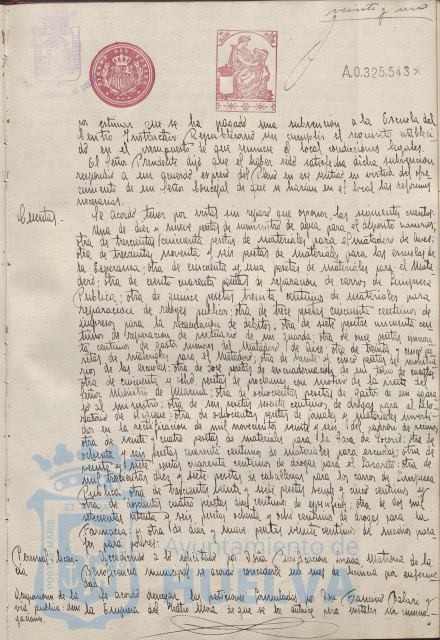 veinte y uno
A.0.325.543
por estimar que se ha pagado una subvención a la Escuela del
Centro Instructivo Republicano sin cumplir el requisito estableci-
do en el presupuesto de que reuniese el local condiciones legales.
El Señor Presidente dijo que el haber sido satisfecha dicha subvención
respondió a un acuerdo expreso del Pleno en ese sentido en virtud del ofre-
cimiento de un Señor Concejal de que se harían en el local las reformas
necesarias.
Cuentas. Se acordó tener por vistas sin reparo que oponer, las siguientes cuentas:
Una de diez y nueve pesetas de suministro de agua para el depósito
otra de trescientas cincuenta pesetas de materiales para el matadero de aves;
otra de trescientas noventa y seis pesetas de materiales para las escuelas de
la Esperanza; otra de cincuenta y una pesetas de materiales para el Mata-
dero; otra de ciento cuarenta pesetas de reparación de carros de Limpieza
Pública; otra de quince pesetas treinta centimos de materiales para
reparación de relojes publico; otra de trece pesetas cincuenta centimos de
impresos para la recaudación de débitos; otra de siete pesetas cincuenta cen-
timos de reparación de vestuario de un guarda; otra de once pesetas
ta centimos de gastos menores del Matadero de Aves; otra de treinta y cinco pe-
setas de materiales para el Matadero; otra de treinta y cinco pesetas de
de las escuelas; otra de doce pesetas de encuadernación de un tomo de cuentas;
otra de cincuenta y ocho pesetas de proclamas con motivo de la visita del
Señor Ministro de Marina; otra de ochocientas pesetas de gastos de un
otra de mil pesetas setenta centimos de drogas para el Labo-
ratorio de higiene; otra de ochocientas pesetas de jornales y materiales inverti-
dos en la rectificación de mil novecientos veinte y seis del padrón de vecinos;
otra de veinte y cuatro pesetas de materiales para la Casa de Socorro; otra de
ochenta y seis pesetas cuarenta centimos de materiales para escuelas; otra de
veinte y siete pesetas cuarenta centimos de drogas para el Lazareto; otra de
mil trescientas diez y siete pesetas de caballerías para los carros de Limpieza
Pública; otra de trescientas veinte y siete pesetas veinte y cinco centimos y
otra de novecientas cuatro pesetas centimos de específicos; otra de dos mil
ochocientas setenta y seis pesetas ochenta y ocho centimos de drogas para la
Farmacia y otra de diez y nueve pesetas veinte centimos de
para pobres.
Personal; licen-
cia Accediendo a lo solicitado por Doña Matrona de la
Beneficencia municipal se acordó concederle un mes de licencia por enferme-
dad.
Ocupación de la
vía pública: Se acordó denegar las peticiones formuladas por Don Francisco Palazi y
la Empresa del Teatro de que se les autorice para instalar un